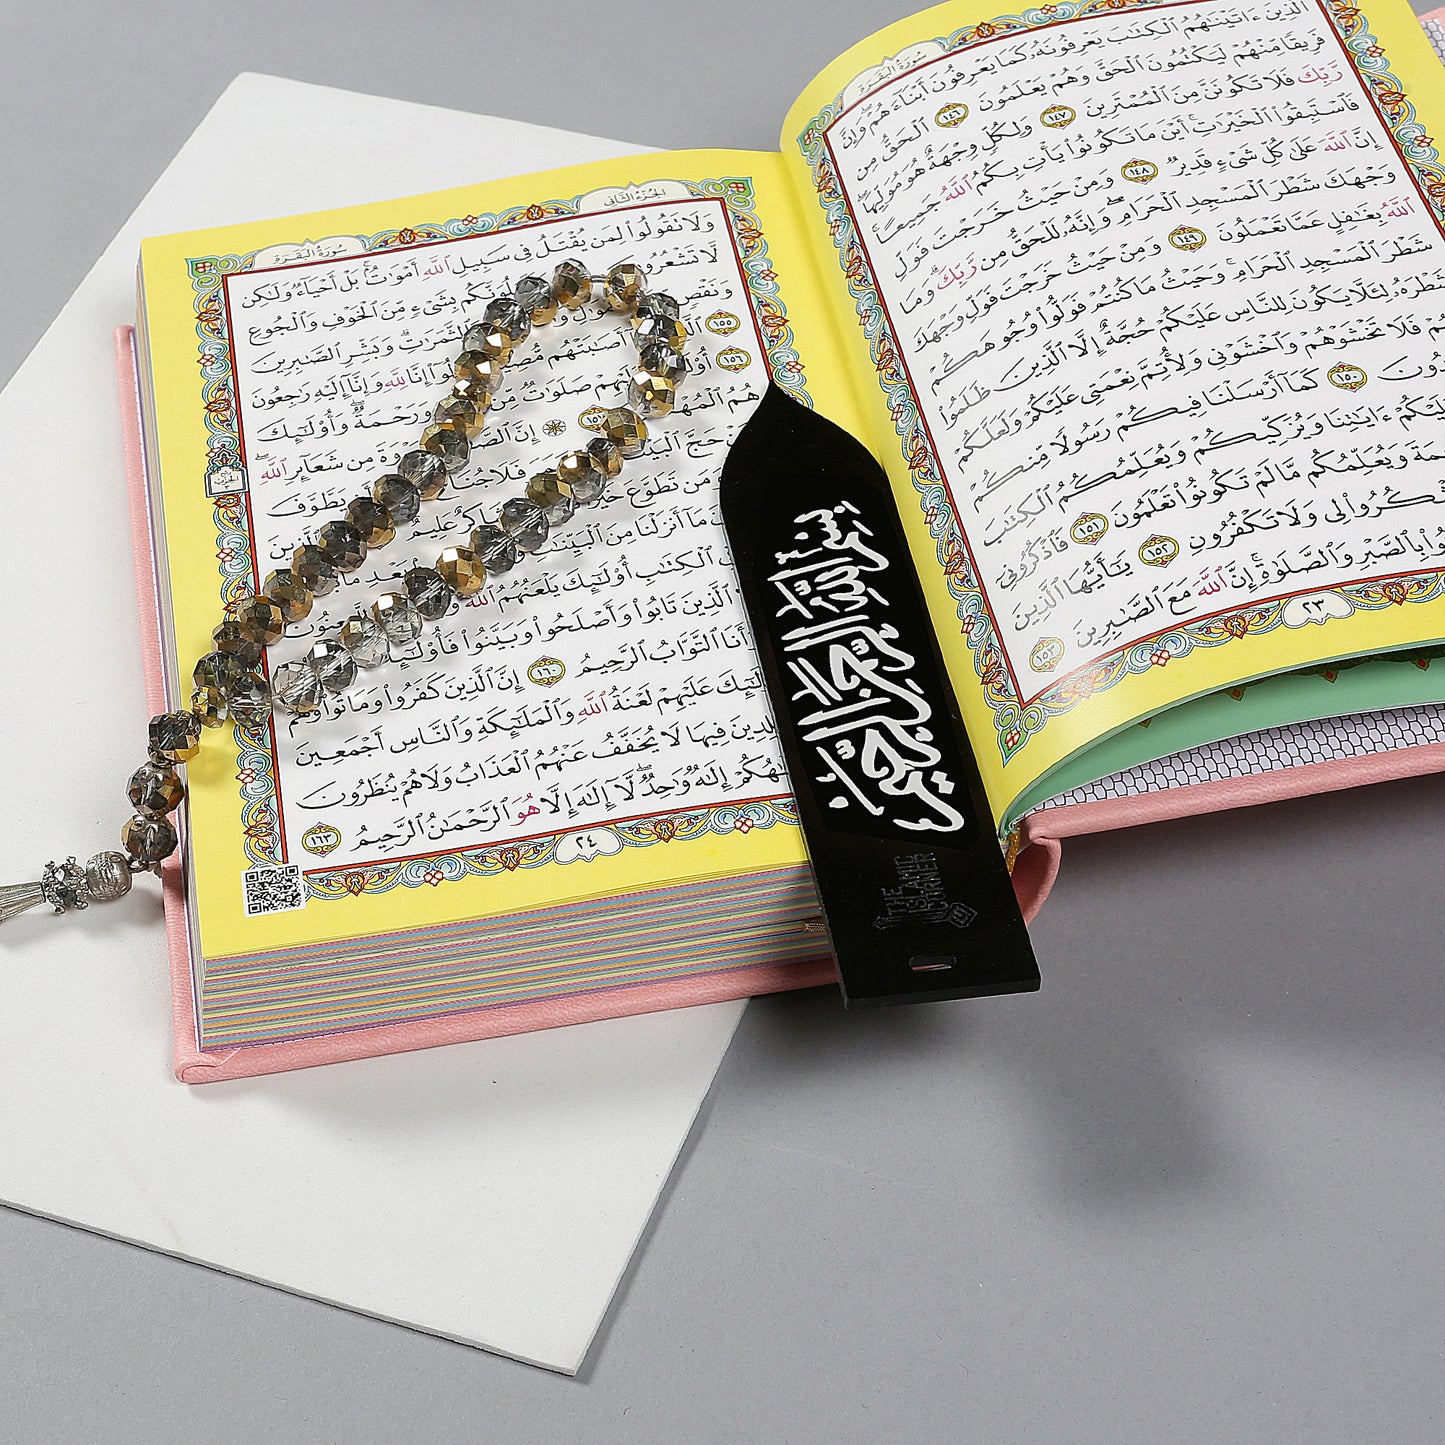 سُورَةُ البَقَرَةِ
الَّذِينَ ءَاتَيْنَاهُمُ الْكِتَابَ يَعْرِفُونَهُ كَمَا يَعْرِفُونَ أَبْنَاءَهُمْ وَإِنَّ
فَرِيقًا مِّنْهُمْ لَيَكْتُمُونَ الْحَقَّ وَهُمْ يَعْلَمُونَ ١٤٦ الْحَقُّ مِن
رَّبِّكَ فَلَا تَكُونَنَّ مِنَ الْمُمْتَرِينَ ١٤٧ وَلِكُلٍّ وِجْهَةٌ هُوَ مُوَلِّيهَا
فَاسْتَبِقُوا الْخَيْرَاتِ أَيْنَ مَا تَكُونُوا يَأْتِ بِكُمُ اللَّهُ جَمِيعًا
إِنَّ اللَّهَ عَلَىٰ كُلِّ شَيْءٍ قَدِيرٌ ١٤٨ وَمِنْ حَيْثُ خَرَجْتَ فَوَلِّ
وَجْهَكَ شَطْرَ الْمَسْجِدِ الْحَرَامِ وَإِنَّهُ لَلْحَقُّ مِن رَّبِّكَ وَمَا
اللَّهُ بِغَافِلٍ عَمَّا تَعْمَلُونَ ١٤٩ وَمِنْ حَيْثُ خَرَجْتَ فَوَلِّ وَجْهَكَ
شَطْرَ الْمَسْجِدِ الْحَرَامِ وَحَيْثُ مَا كُنتُمْ فَوَلُّوا وُجُوهَكُمْ
شَطْرَهُ لِئَلَّا يَكُونَ لِلنَّاسِ عَلَيْكُمْ حُجَّةٌ إِلَّا الَّذِينَ ظَلَمُوا
فَلَا تَخْشَوْهُمْ وَاخْشَوْنِي وَلِأُتِمَّ نِعْمَتِي عَلَيْكُمْ وَلَعَلَّكُمْ
١٥٠ كَمَا أَرْسَلْنَا فِيكُمْ رَسُولًا مِّنكُمْ
ءَايَاتِنَا وَيُزَكِّيكُمْ وَيُعَلِّمُكُمُ الْكِتَابَ
وَيُعَلِّمُكُم مَّا لَمْ تَكُونُوا تَعْلَمُونَ ١٥١ فَاذْكُرُونِي
وَاشْكُرُوا لِي وَلَا تَكْفُرُونِ ١٥٢ يَا أَيُّهَا الَّذِينَ
بِالصَّبْرِ وَالصَّلَاةِ إِنَّ اللَّهَ مَعَ الصَّابِرِينَ ١٥٣
٢٣
الجُزْءُ الثَّانِي
سُورَةُ البَقَرَةِ
وَلَا تَقُولُوا لِمَن يُقْتَلُ فِي سَبِيلِ اللَّهِ أَمْوَاتٌ بَلْ أَحْيَاءٌ وَلَٰكِن
لَّا تَشْعُرُونَ بِشَيْءٍ مِّنَ الْخَوْفِ وَالْجُوعِ
وَنَقْصٍ وَالثَّمَرَاتِ وَبَشِّرِ الصَّابِرِينَ
١٥٥ أَصَابَتْهُم إِنَّا لِلَّهِ وَإِنَّا إِلَيْهِ رَاجِعُونَ
١٥٦ صَلَوَاتٌ مِّن وَرَحْمَةٌ وَأُولَٰئِكَ
هُمُ ١٥٧ إِنَّ مِن شَعَائِرِ اللَّهِ
حَجَّ فَلَا جُنَاحَ يَطَّوَّفَ
وَمَن تَطَوَّعَ شَاكِرٌ عَلِيمٌ
مَا أَنزَلْنَا مِنَ الْبَيِّنَاتِ
الْكِتَابِ أُولَٰئِكَ يَلْعَنُهُمُ اللَّهُ
الَّذِينَ تَابُوا وَأَصْلَحُوا وَبَيَّنُوا
وَأَنَا التَّوَّابُ الرَّحِيمُ ١٦٠ إِنَّ الَّذِينَ كَفَرُوا وَمَاتُوا وَهُمْ
عَلَيْهِمْ لَعْنَةُ اللَّهِ وَالْمَلَائِكَةِ وَالنَّاسِ أَجْمَعِينَ
فِيهَا لَا يُخَفَّفُ عَنْهُمُ الْعَذَابُ وَلَا هُمْ يُنظَرُونَ
إِلَٰهٌ وَاحِدٌ لَّا إِلَٰهَ إِلَّا هُوَ الرَّحْمَٰنُ الرَّحِيمُ ١٦٣
٢٤
بِسْمِ اللَّهِ الرَّحْمَٰنِ الرَّحِيمِ
THE
ISLAMIC
CORNER